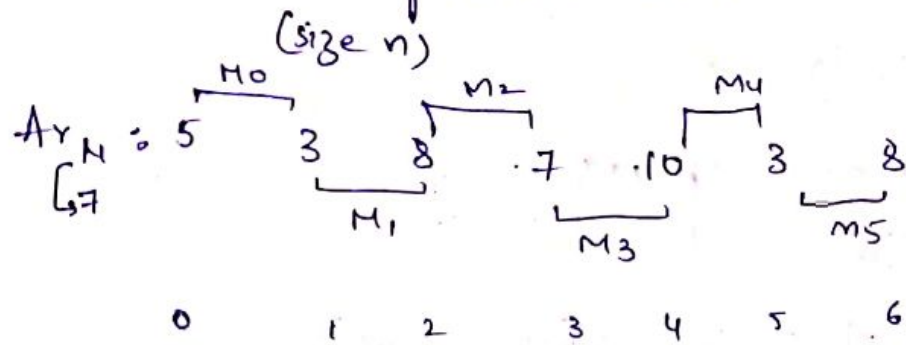 (size n)
M0 M2 M4
Ar N : 5 3 8 7 10 3 8
↳7
M1 M3 M5
0 1 2 3 4 5 6